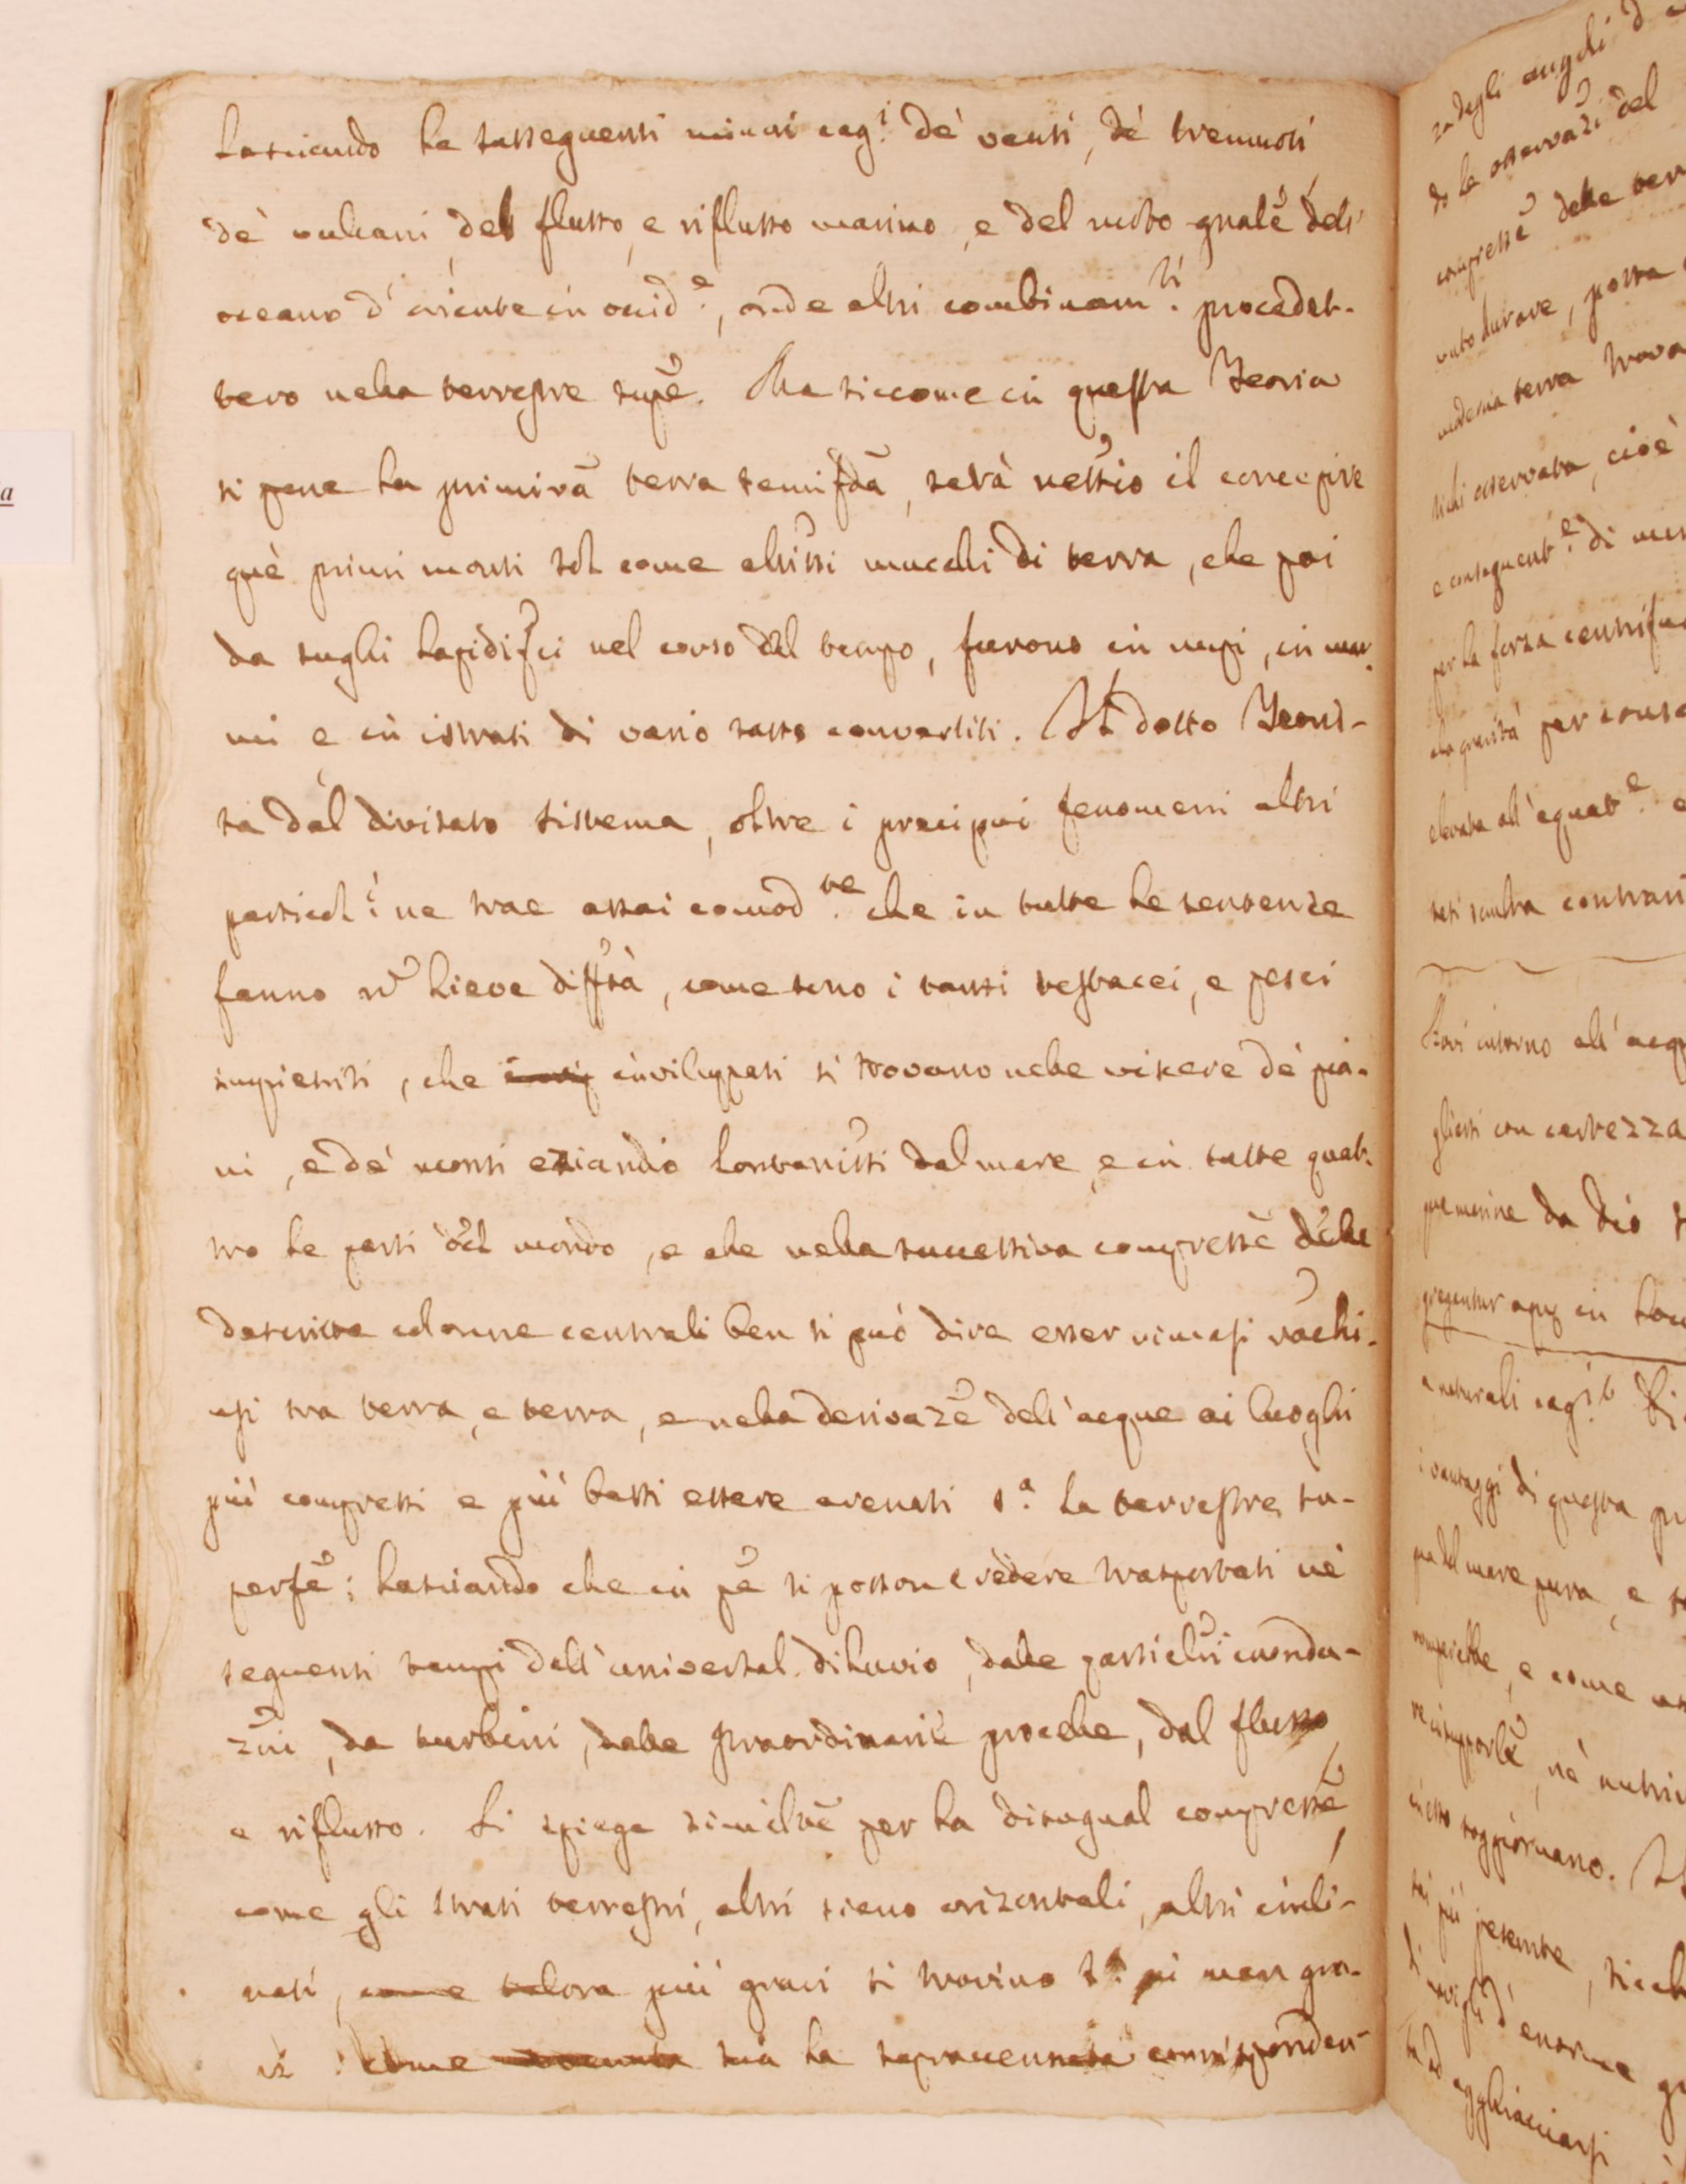 lasciando le susseguenti minori cag.i de' venti, de' tremuoti
de' vulcani, del flusso, e riflusso marino, e del moto gnale dell'
oceano d'oriente in occid.e, onde altri combinam.ti procedet-
tero nella terrestre supe. Ma siccome in questa Teoria
si pone la primiva terra semifda, sarà nessio il concepire
què primi monti sol come altissi mucchi di terra, che poi
da sughi lapidifci nel corso del tempo, furono in rupi, in mar-
mi e in istrati di vario sasso convertiti. Il dotto Teoris-
ta dal divisato sistema, oltre i precipui fenomeni altri
particol.i ne trae assai comod.te che in tutte le sentenze
fanno n lieve diffta, come sono i tanti testacei, e pesci
impietriti, che inviluppati si trovano nelle viscere de' pia-
ni, e de' monti eziandio lontanissi dal mare, e in tutte quat-
tro le parti del mondo, e che nella successiva compresse delle
descritte colonne centrali ben si può dire esser rimasi rachi-
usi tra terra, e terra, e nella derivaze dell'acque ai luoghi
più compressi e più bassi essere arenati s.a la terrestre su-
perfe; lasciando che in pe si posson credere trasportati ne'
seguenti tempi dell'universal diluvio, dalle particlri inonda-
zni, da turbini, dalle straordinarie procelle, dal flusso
e riflusso. Si spiega similte per la disugual compresse
come gli strati terrestri, altri sieno orizontali, altri incli-
nati, come talora più gravi si trovino s.a i men gra-
vi: come sia la sopraccennata corrisponden-
za degli angoli d
do le osservazi del
compresse delle terr
nuto durare, possa
moderna terra trova
osservata, cioè
e conseguent.e di
per la forza centrifu
gravità per
elevata all'equat.e e
contrari
intorno all'acq
con certezza
da Dio
in
naturali cag.i
i vantaggi di questa pr
del mare pura, e
, e come
, nè nutri
soggiornano.
più pesante, sicch
d'enorme
agghiacciarsi